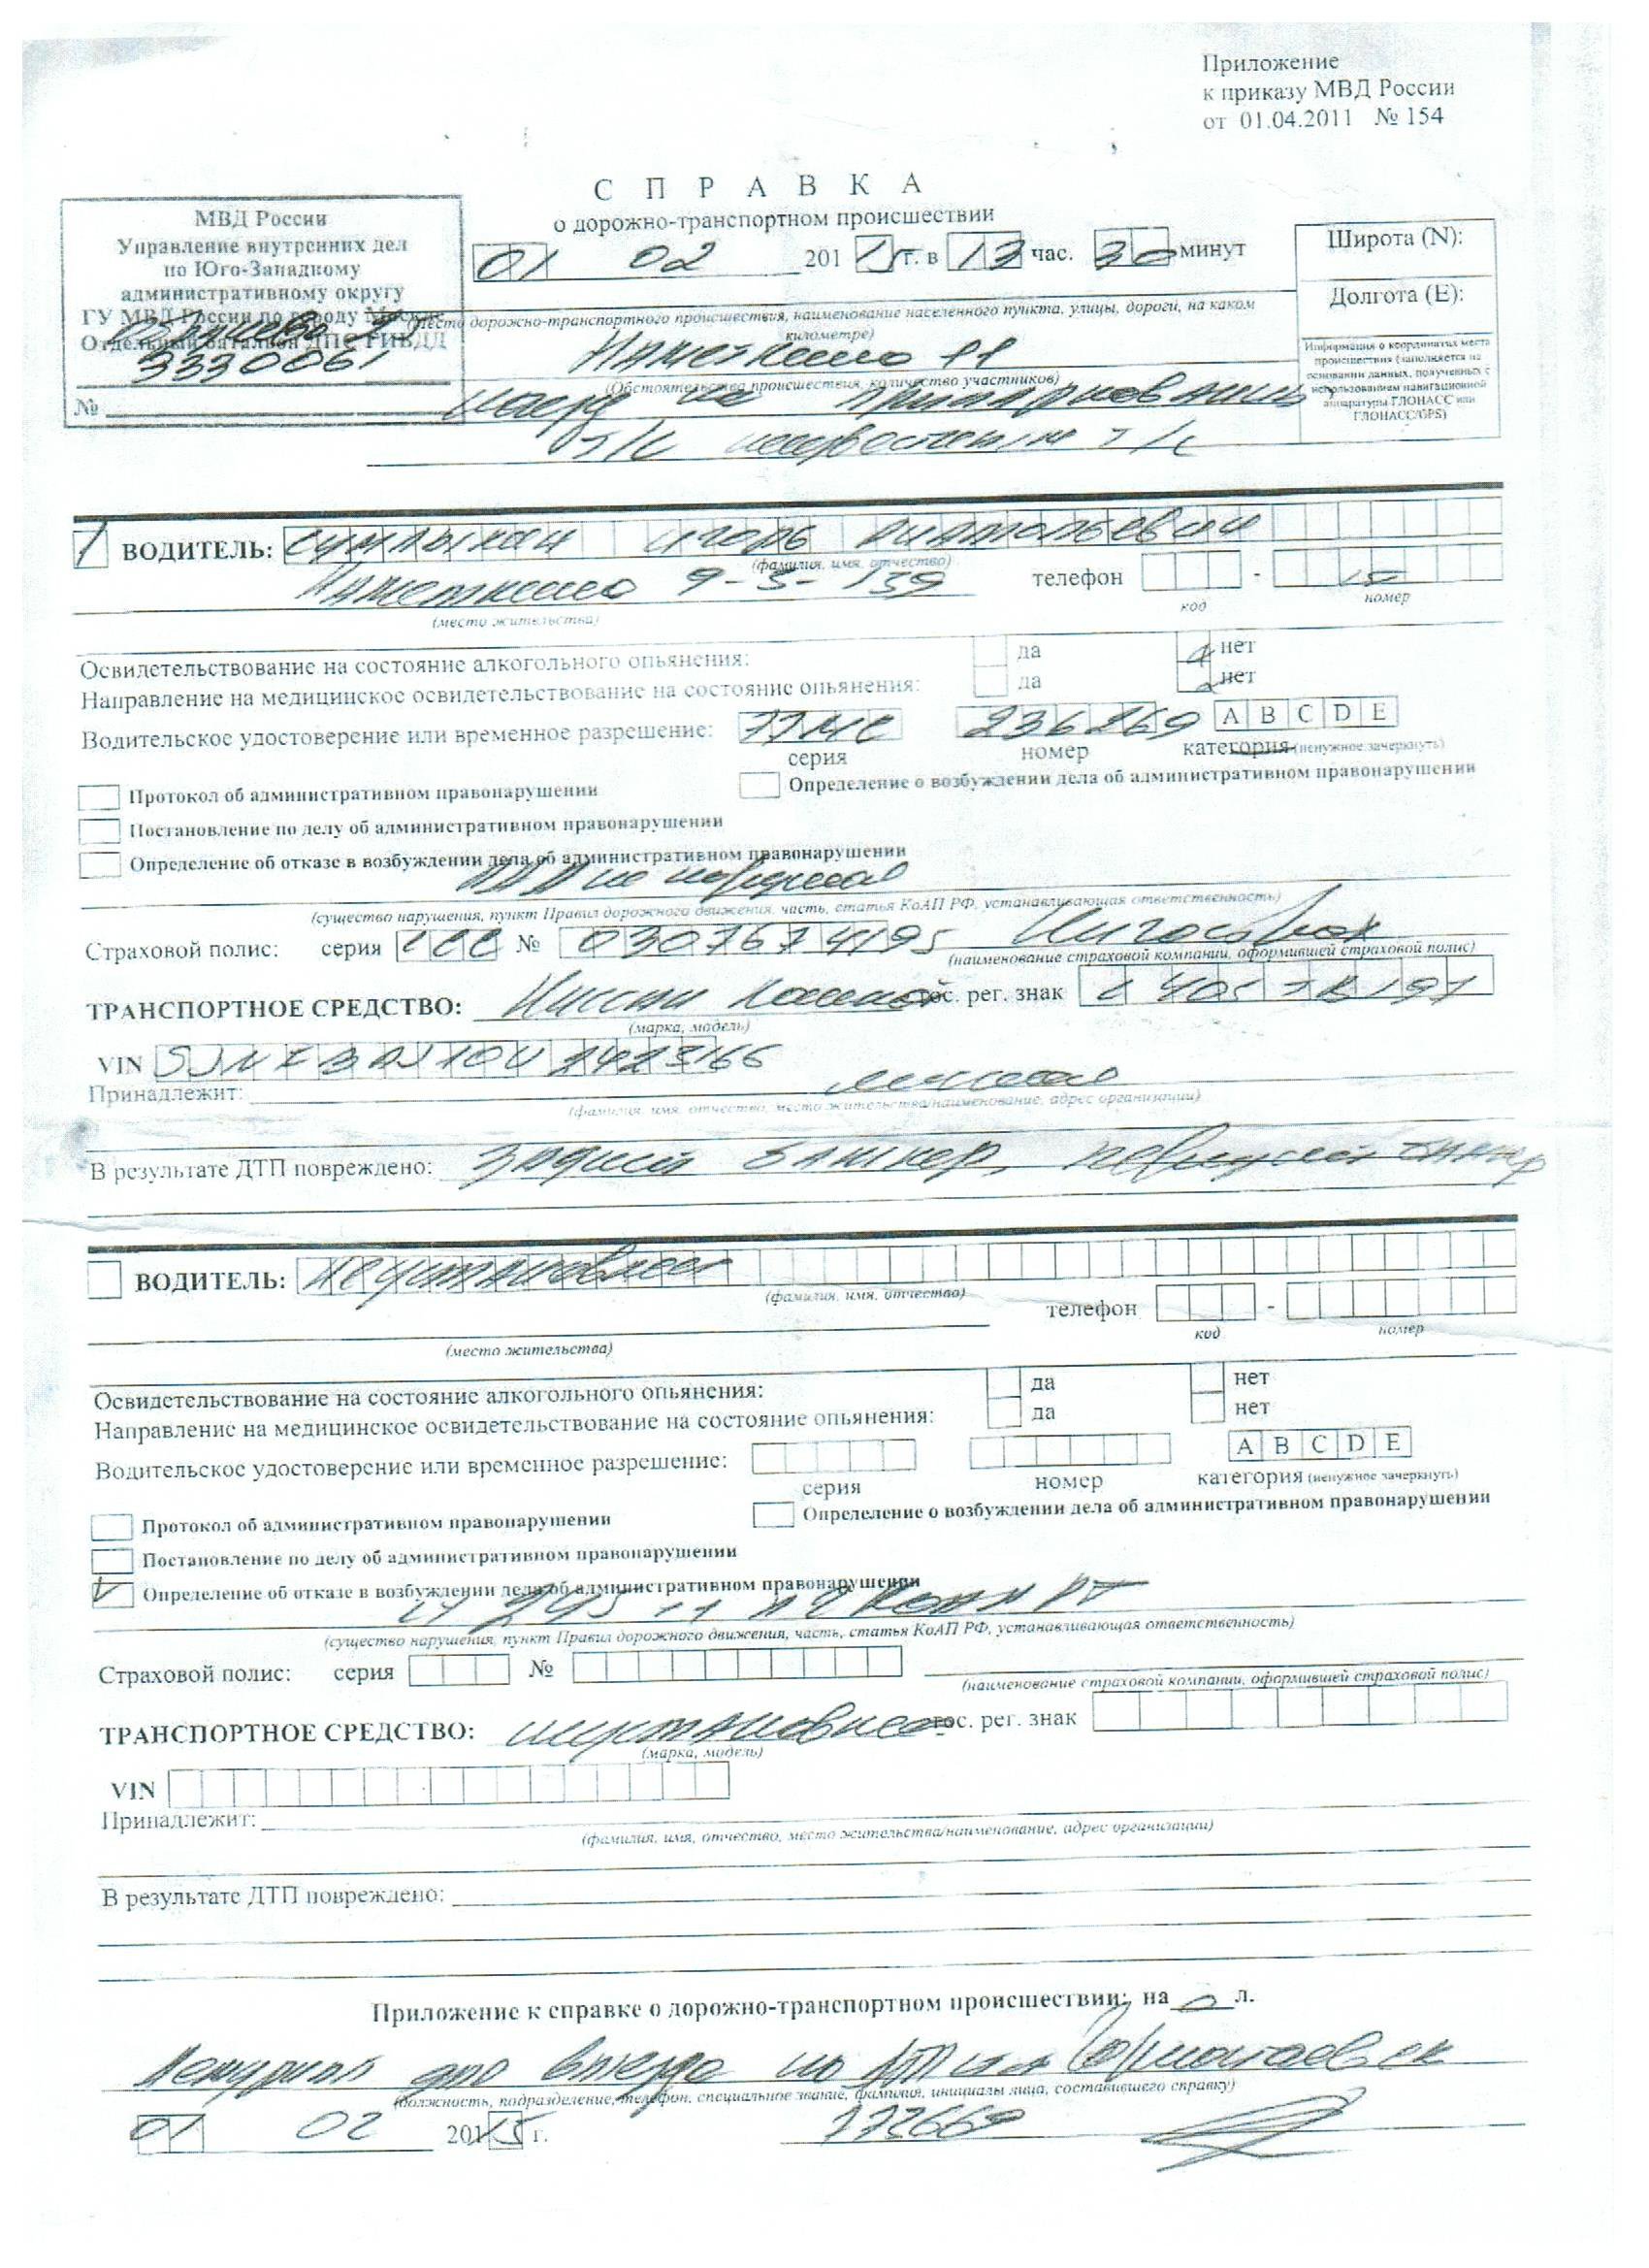 Приложение
к приказу МВД России
от 01.04.2011 № 154
С П Р А В К А
о дорожно-транспортном происшествии
МВД России
Управление внутренних дел
по Юго-Западному
административному округу
ГУ МВД России по городу Москве
Отдельный батальон ДПС ГИБДД
3330061
№
01 02 2015 г. в 13 час. 30 минут
Широта (N):
Долгота (E):
(место дорожно-транспортного происшествия, наименование населенного пункта, улицы, дороги, на каком
километре)
Наметкина 11
(Обстоятельства происшествия, количество участников)
Информация о координатах места
происшествия (заполняется на
основании данных, полученных с
использованием навигационной
аппаратуры ГЛОНАСС или
ГЛОНАСС/GPS)
наезд на припаркованный
т/с неизвестным т/с
1 ВОДИТЕЛЬ: Игорь Анатольевич
(фамилия, имя, отчество)
Наметкина 9-3-139 телефон -
(место жительства) код номер
Освидетельствование на состояние алкогольного опьянения: да нет
Направление на медицинское освидетельствование на состояние опьянения: да нет
Водительское удостоверение или временное разрешение: 77МС 236269 A B C D E
серия номер категория (ненужное зачеркнуть)
Протокол об административном правонарушении
Определение о возбуждении дела об административном правонарушении
Постановление по делу об административном правонарушении
Определение об отказе в возбуждении дела об административном правонарушении
ПДД не нарушал
(существо нарушения, пункт Правил дорожного движения, часть, статья КоАП РФ, устанавливающая ответственность)
Страховой полис: серия ССС № 0307674195 Ингосстрах
(наименование страховой компании, оформившей страховой полис)
ТРАНСПОРТНОЕ СРЕДСТВО: Ниссан гос. рег. знак
(марка, модель)
VIN
Принадлежит:
(фамилия, имя, отчество, место жительства/наименование, адрес организации)
В результате ДТП повреждено: Задний бампер, передний бампер
ВОДИТЕЛЬ: Не установлен
(фамилия, имя, отчество)
телефон -
(место жительства) код номер
Освидетельствование на состояние алкогольного опьянения: да нет
Направление на медицинское освидетельствование на состояние опьянения: да нет
Водительское удостоверение или временное разрешение: A B C D E
серия номер категория (ненужное зачеркнуть)
Протокол об административном правонарушении
Определение о возбуждении дела об административном правонарушении
Постановление по делу об административном правонарушении
V Определение об отказе в возбуждении дела об административном правонарушении
КоАП РФ
(существо нарушения, пункт Правил дорожного движения, часть, статья КоАП РФ, устанавливающая ответственность)
Страховой полис: серия №
(наименование страховой компании, оформившей страховой полис)
ТРАНСПОРТНОЕ СРЕДСТВО: не установлено гос. рег. знак
(марка, модель)
VIN
Принадлежит:
(фамилия, имя, отчество, место жительства/наименование, адрес организации)
В результате ДТП повреждено:
Приложение к справке о дорожно-транспортном происшествии: на л.
Дежурный для выезда на ДТП
(должность, подразделение, телефон, специальное звание, фамилия, инициалы лица, составившего справку)
01 02 2015 г.